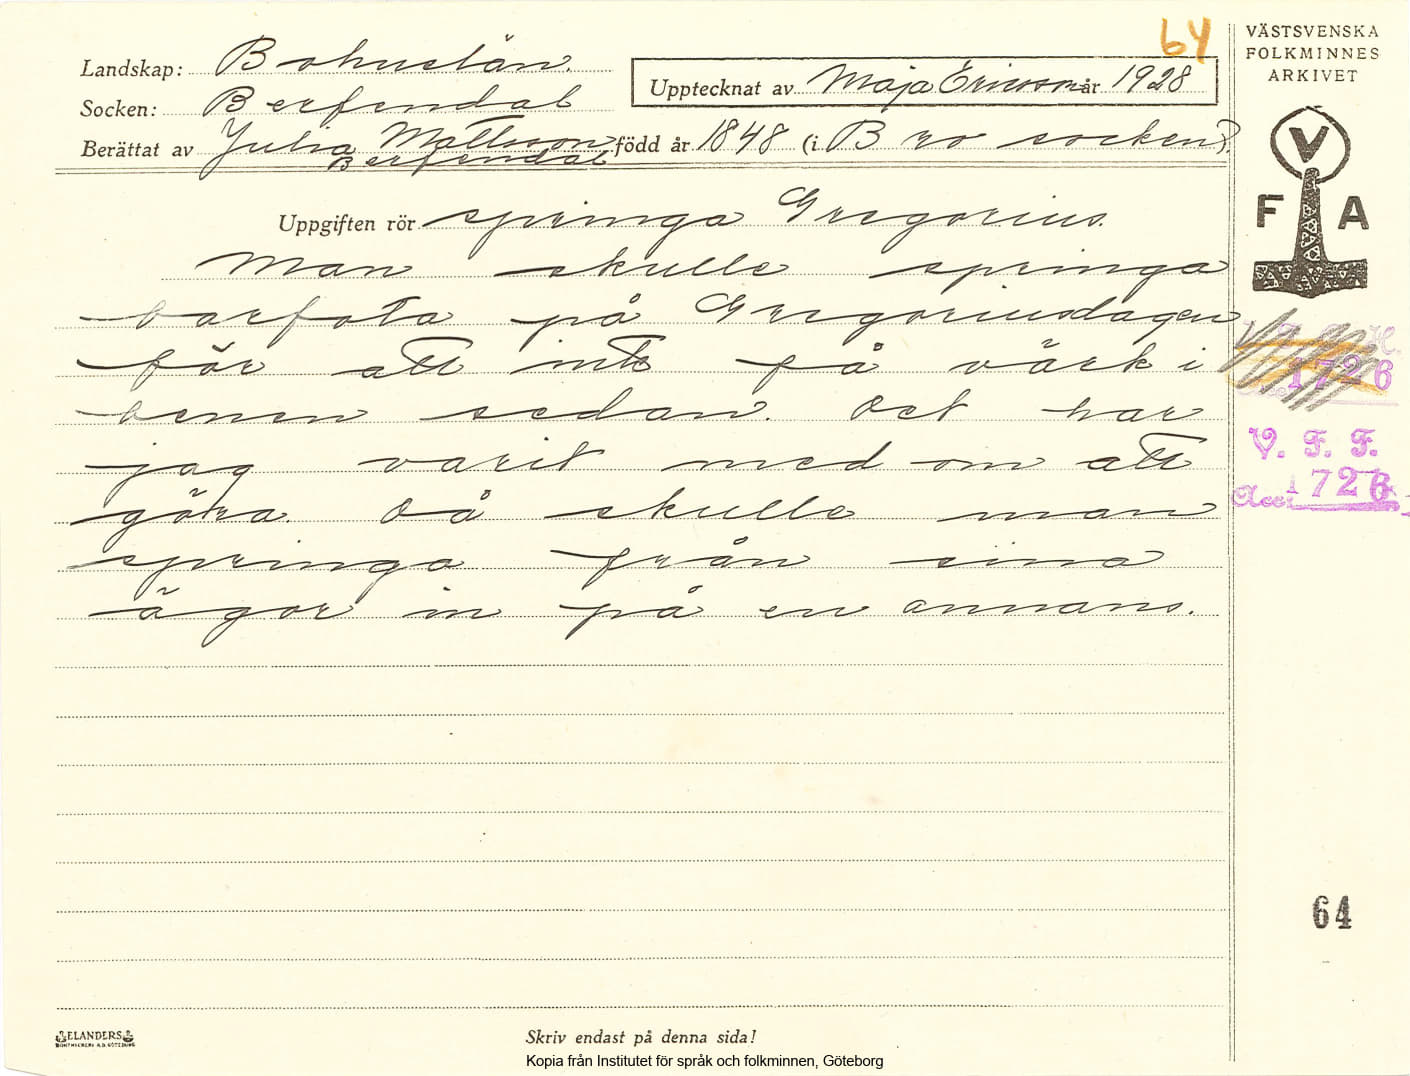 64
VÄSTSVENSKA
FOLKMINNES
ARKIVET
Landskap: Bohuslän.
Upptecknat av Maja Ericsson år 1928
Socken: Berfendal
Berättat av Julia Mattsson född år 1848 (i Bro socken).
Berfendal
V
F A
Uppgiften rör springa Gregorius.
Man skulle springa
barfota på Gregoriusdagen
för att inte få värk i
benen sedan. Det har
jag varit med om att
göra. Då skulle man
springa från sina
ägor in på en annans.
1726
V. F. F.
Acc. 1726
64
ELANDERS
Skriv endast på denna sida!
Kopia från Institutet för språk och folkminnen, Göteborg